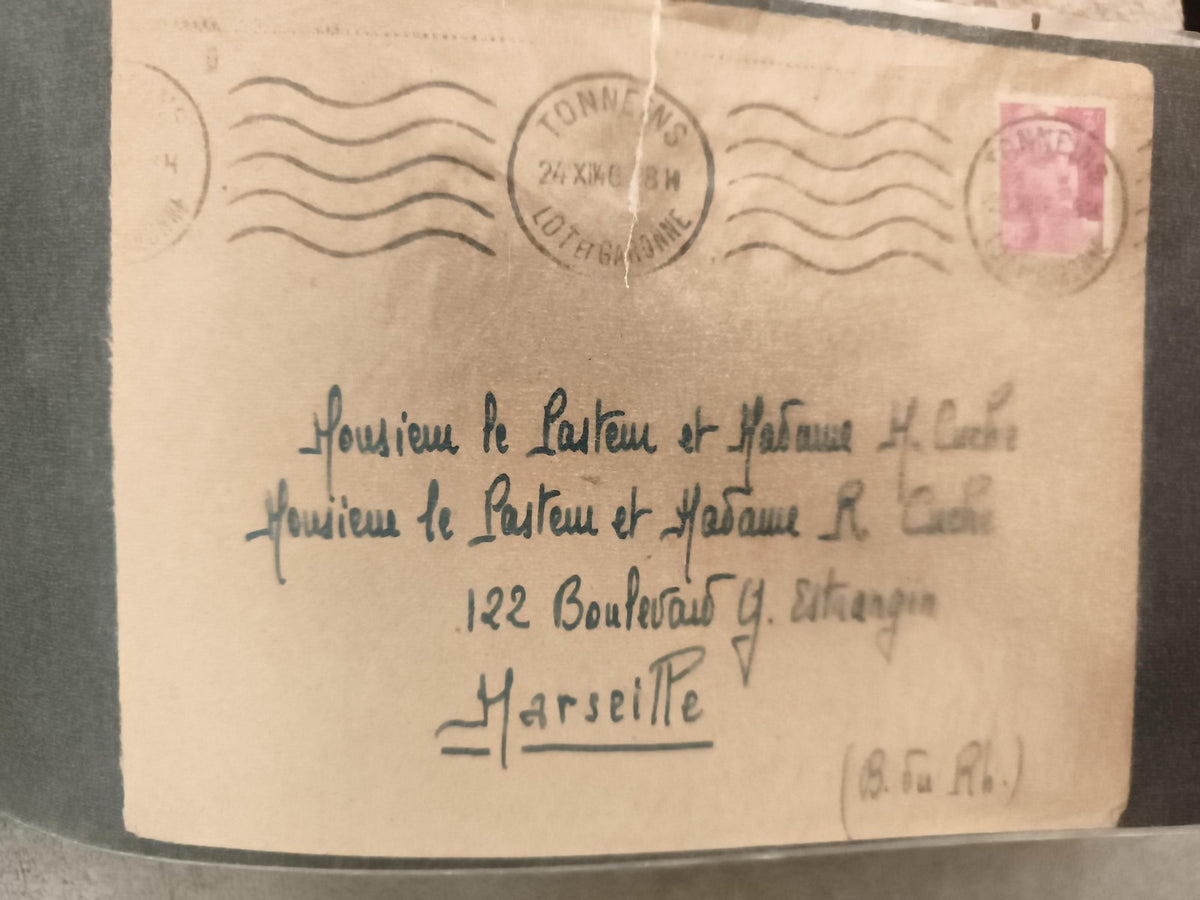 TONNEINS
24 XII 46 8H
LOT ET GARONNE
Monsieur le Pasteur et Madame M. Cuche
Monsieur le Pasteur et Madame R. Cuche
122 Boulevard G. Estrangin
Marseille
(B. du Rh.)